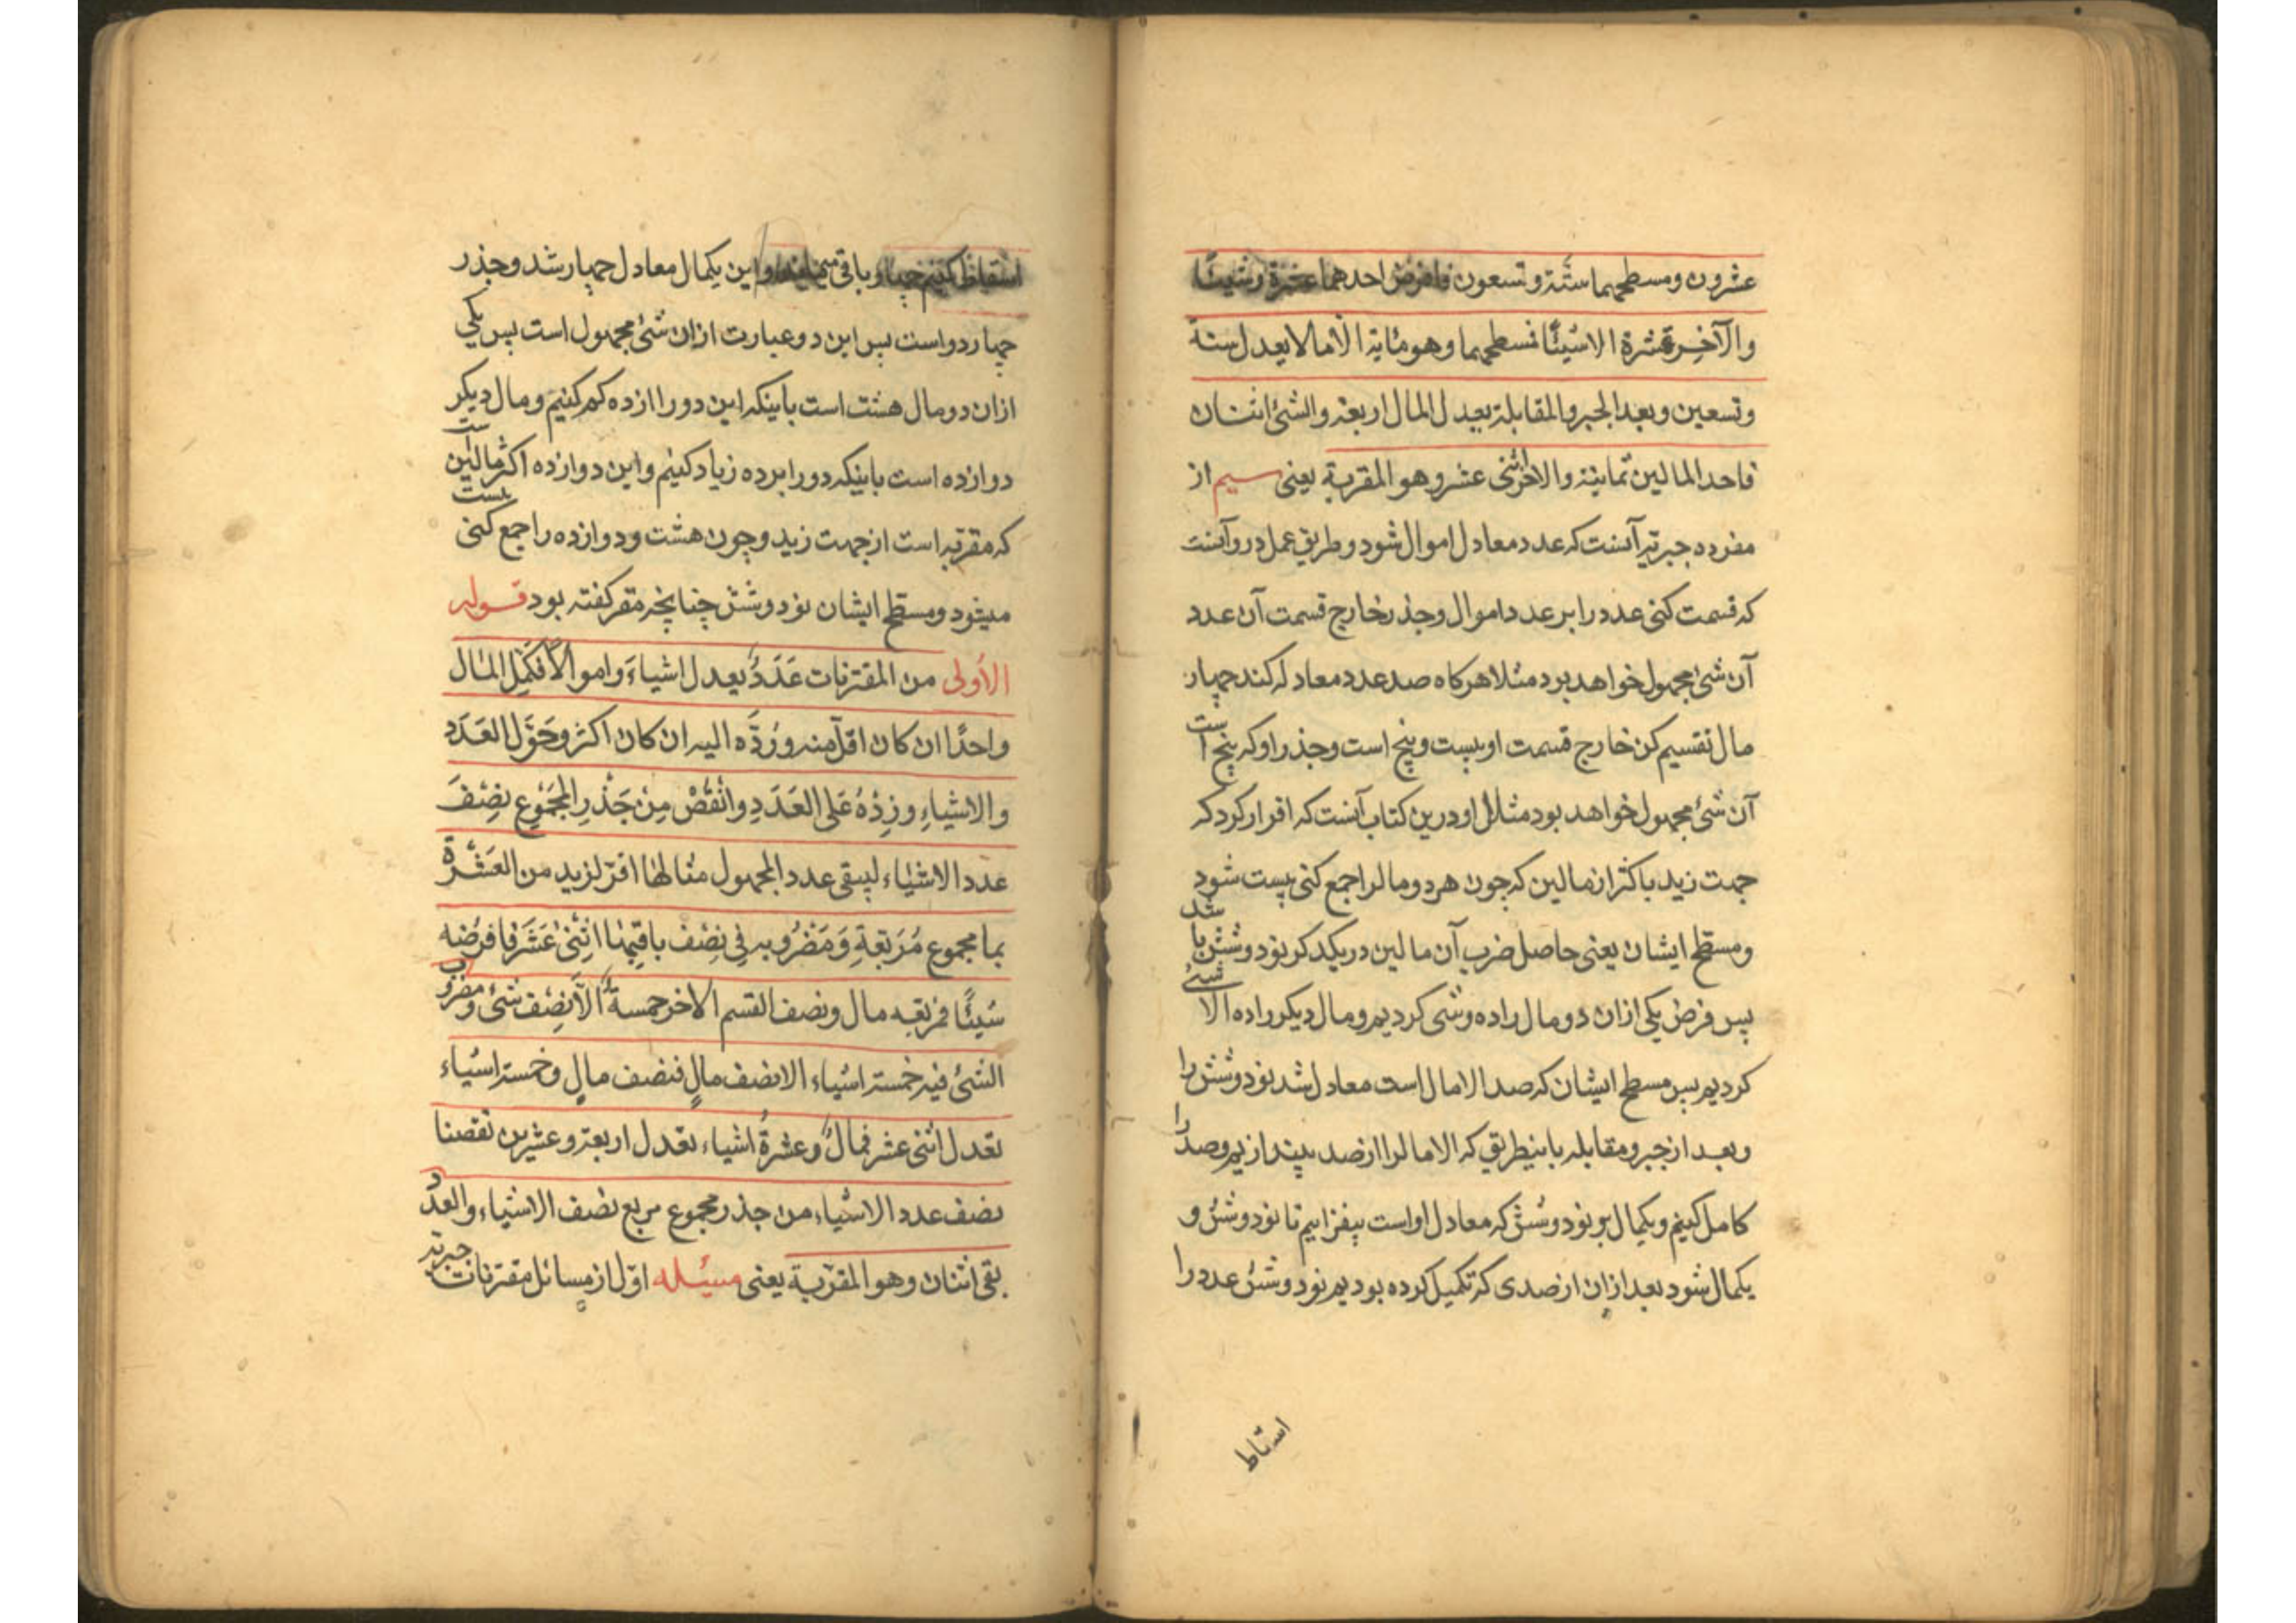 عشرون ومسطحهما ستة وتسعون فافرض احدهما عشرة وشيئًا
والآخر عشرة الا شيئًا فمسطحهما وهو مائة الا مالا يعدل ستة
وتسعين وبعد الجبر والمقابلة يعدل المال اربعة والشئ اثنان
فاحد المالين ثمانية والاخر اثنى عشر وهو المقربة يعنى سيم از
مفرده جبریه آنست که عدد معادل اموال شود و طریق عمل درو آنست
که قسمت کنی عدد را بر عدد اموال وجذر خارج قسمت آن عدد
آن شئ مجهول خواهد بود مثلا هرکاه صد عدد معادله کند چهار
مال تقسیم کن خارج قسمت او بیست و پنج است وجذر او که پنج است
آن شئ مجهول خواهد بود مثال او درین کتاب آنست که اقرار کرد که
جهت زید باکثر از مالین که چون هر دو مال را جمع کنی بیست شود
ومسطح ایشان یعنی حاصل ضرب آن مالین در یکدکر نود وشش باشد
پس فرض یکی از ان دو مال را ده وشی کردیم و مال دیکر را ده الا شئ
کردیم پس مسطح ایشان که صد الا مال است معادل شد نود وشش را
وبعد از جبر و مقابله باینطریق که الا مال را از صد بیندازیم وصد را
کامل کنیم و یکمال بر نود وشش که معادل اواست بیفزاییم تا نود وشش و
یکمال شود بعد ازان از صدی که تکمیل کرده بودیم نود وشش عدد را
اسقاط
اسقاط کنیم چهار باقی میماند و این یکمال معادل چهار شد وجذر
چهار دو است پس این دو عبارت ازان شئ مجهول است پس یکی
ازان دو مال هشت است باینکه این دو را از ده کم کنیم و مال دیکر
دوازده است باینکه دو را بر ده زیاد کنیم و این دوازده اکثر مالین است
که مقربه است از جهت زید وچون هشت ودوازده را جمع کنی بیست
میشود ومسطح ایشان نود وشش چنانچه مقر کفته بود قوله
الأولى من المقترنات عَدَدٌ يعدل اشياءَ واموالًا فكَمِّل المال
واحدًا ان كان اقلّ منه ورُدَّه اليه ان كان اكثر وحَوِّل العَدَد
والاشياءِ وزِدْهُ عَلى العَدَدِ وانْقُصْ مِنْ جَذْرِ المجْمُوعِ نِصْفَ
عدد الاشياء ليبقى عدد المجهول مثالها اقرّ لزيد من العَشَرَة
بما مجموع مُرَبَّعِهِ وَمَضْرُوبه فِي نِصْف باقيها اثْنَىْ عَشَرَ فافرضه
شيئًا فمربعه مال ونصف القسم الاخر خمسة الا نِصْف شئ ومضروب
الشئ فيه خمسة اشياء الا نصف مالٍ فنصف مالٍ وخمسة اشياء
تعدل اثنى عشر فمالٌ وعشرةُ اشياء تعدل اربعة وعشرين نقصنا
نصف عدد الاشياء من جذر مجموع مربع نصف الاشياء والعدد
بقى اثنان وهو المقرّبة يعنى مسئله اوّل از مسائل مقترنات جبریّه